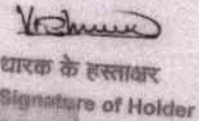 धारक के हस्ताक्षर
Signature of Holder